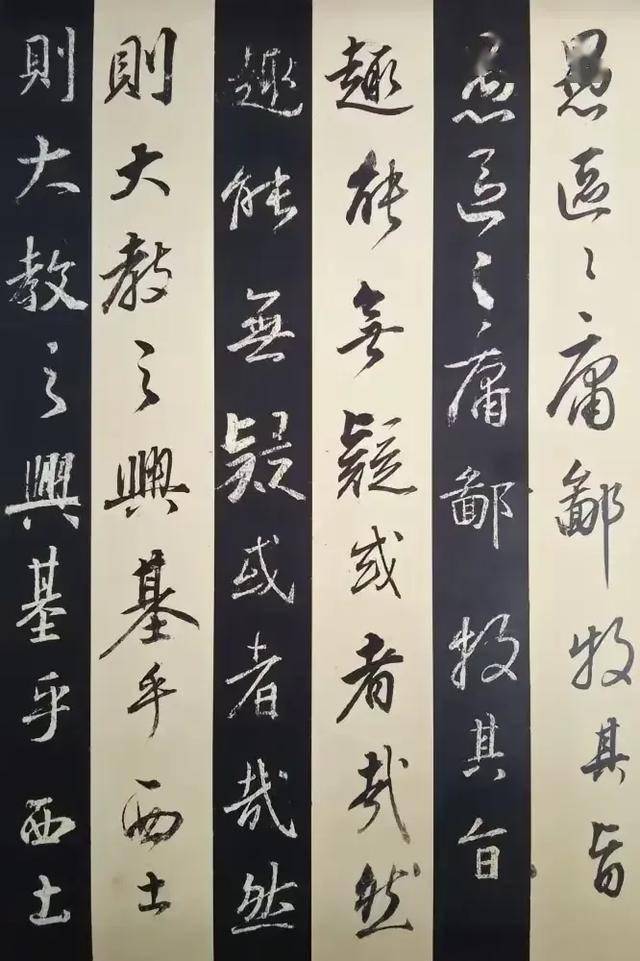 愚區々庸鄙投其旨
愚區々庸鄙投其旨
趣能無疑或者哉然
趣能無疑或者哉然
則大教之興基乎西土
則大教之興基乎西土